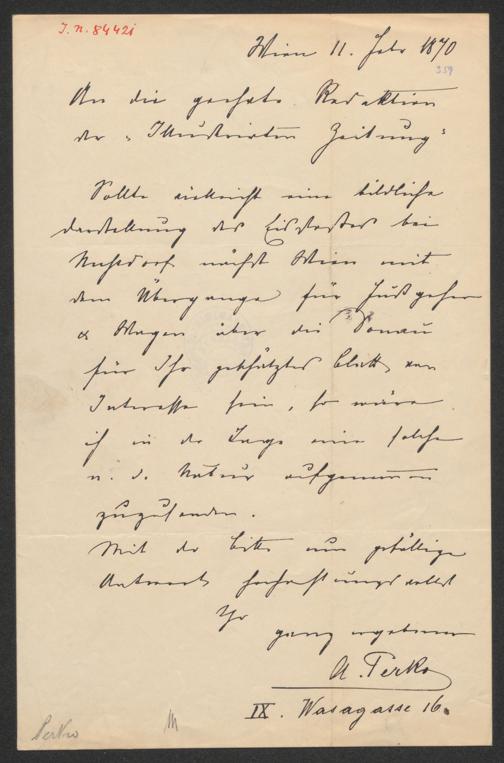 I. N. 84421
Wien 11. Febr 1870
359
An die geehrte Redaktion
der „Illustrirten Zeitung"
Sollte vielleicht eine bildliche
Darstellung des Eisstoßes bei
Nußdorf nächst Wien mit
dem Übergange für Fußgeher
& Wagen über die Donau
für Ihr geschätztes Blatt von
Interesse sein, so wäre
ich in der Lage eine solche
n. d. Natur aufgenommen
zuzusenden.
Mit der Bitte um gefällige
Antwort hochachtungsvollst
Ihr
ganz ergebener
A. Perko
IX. Wasagasse 16.
Perko